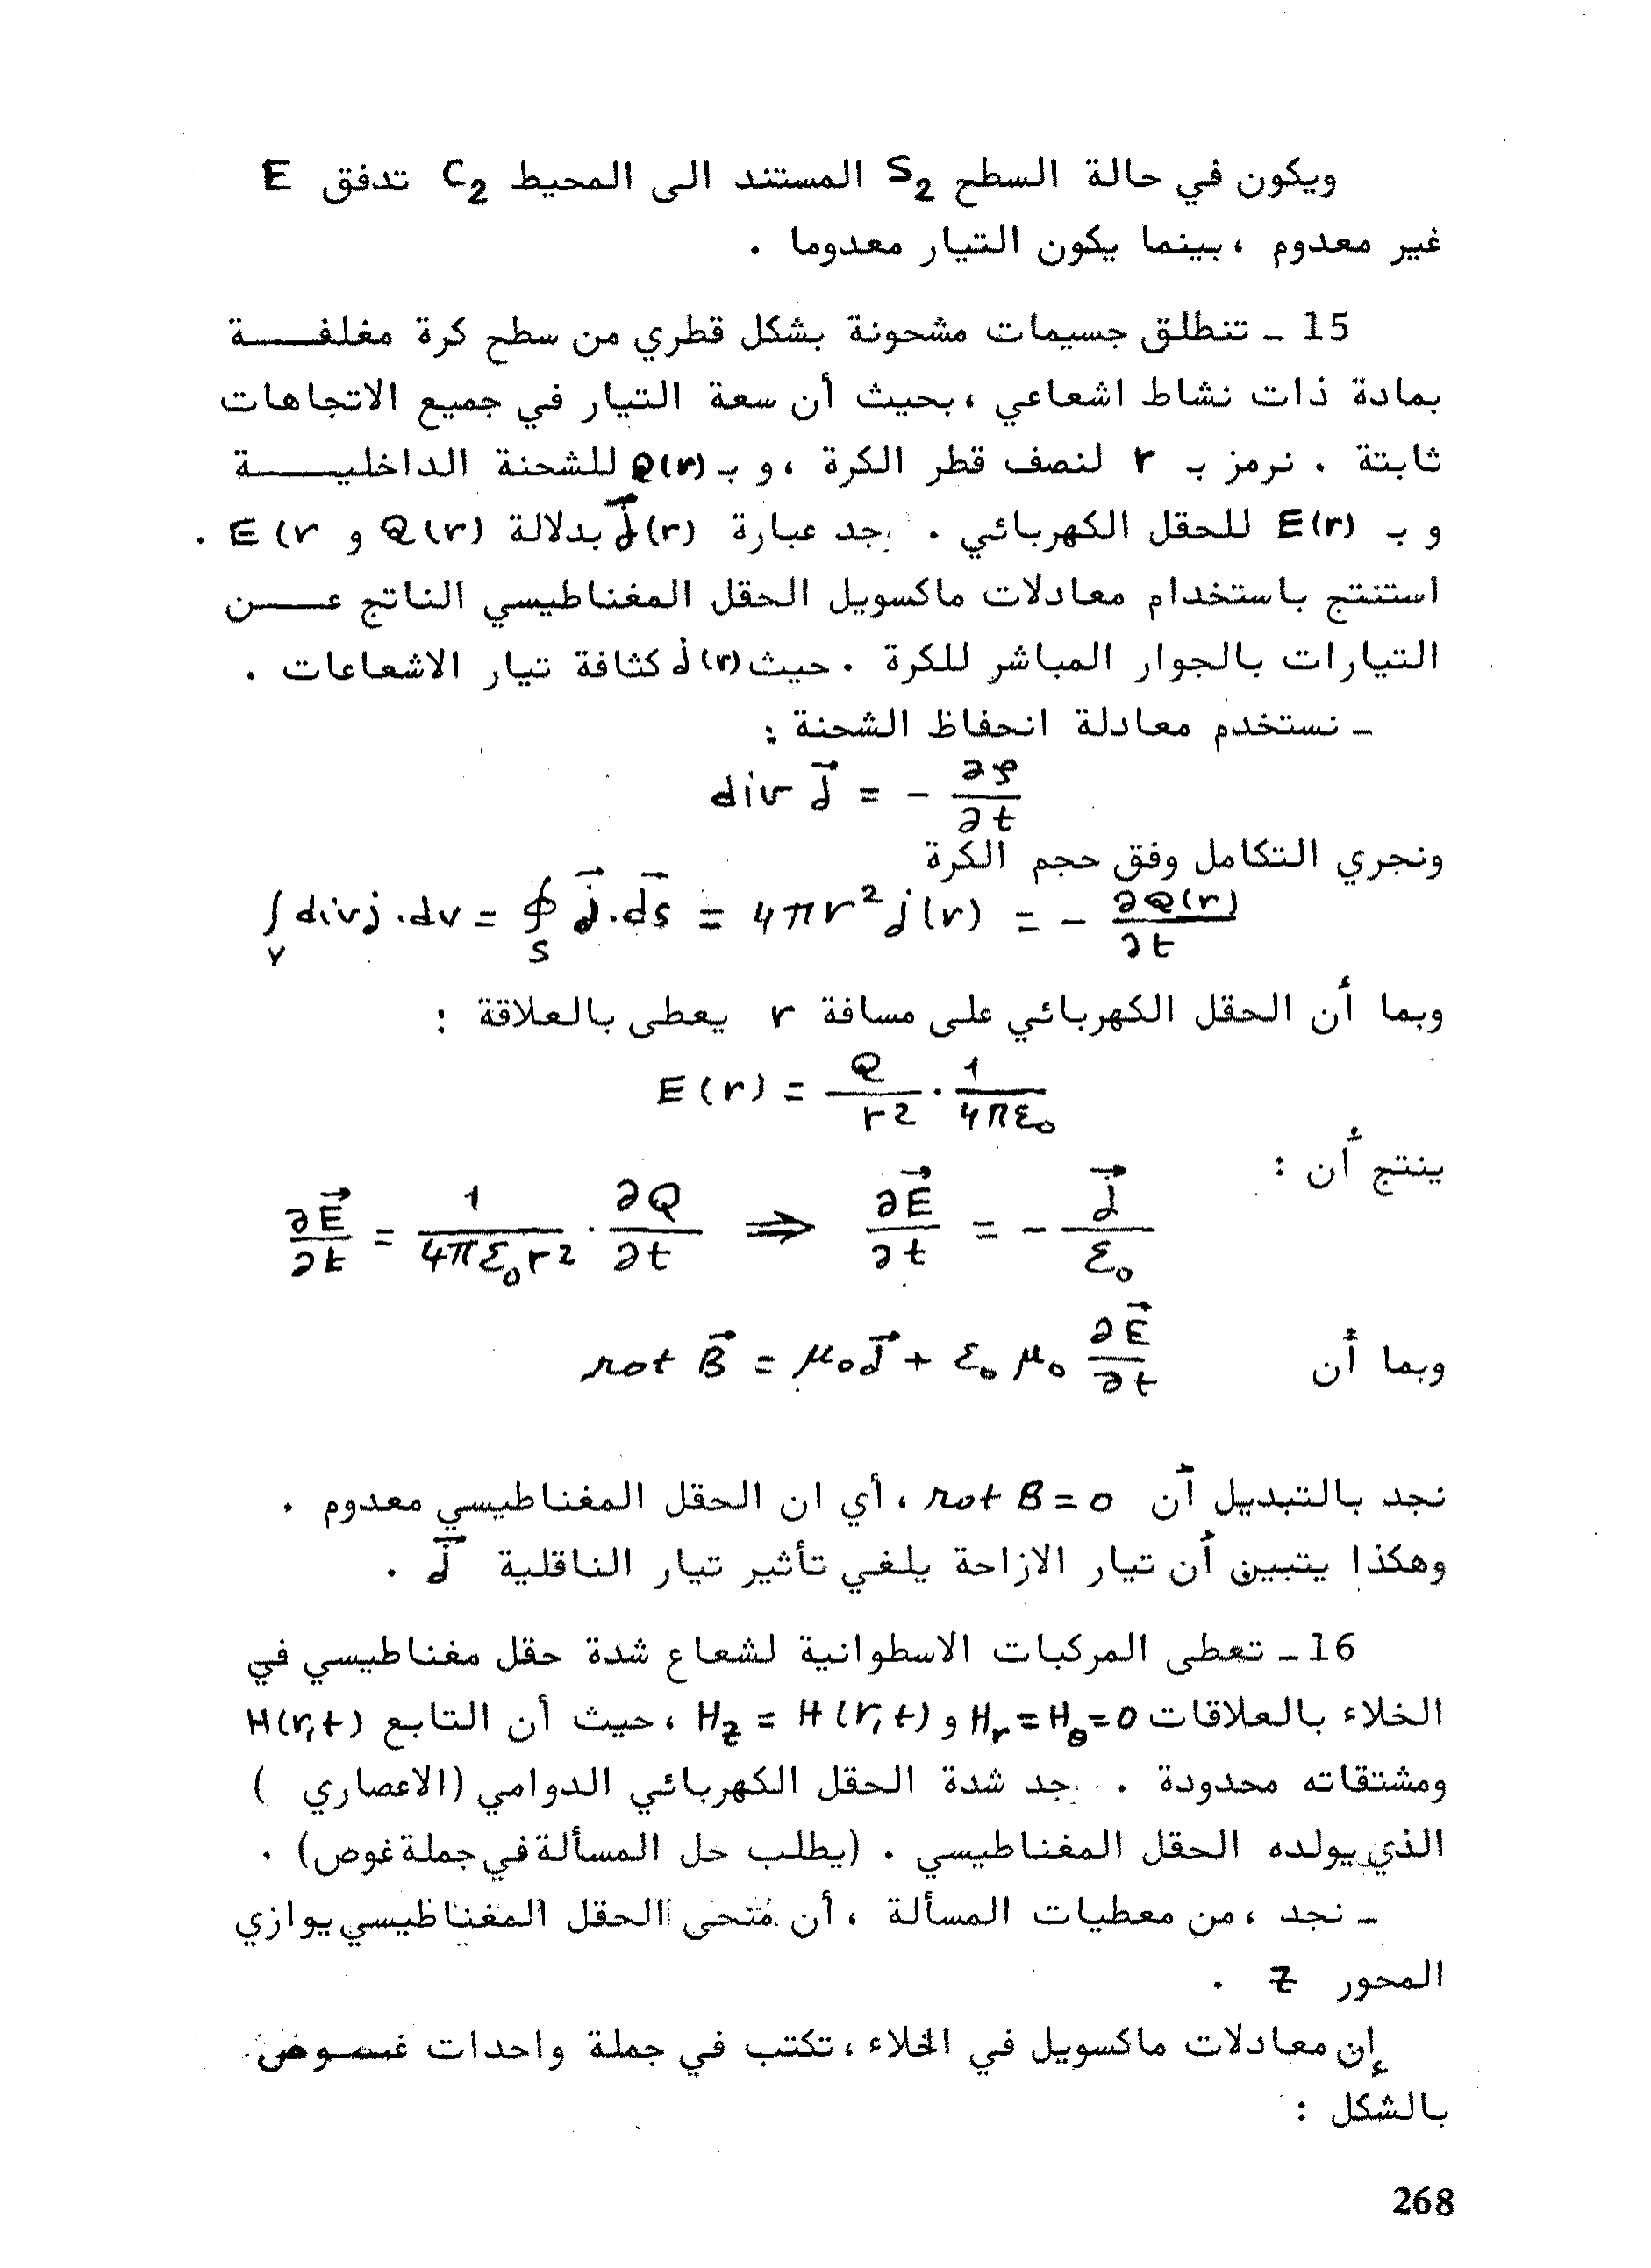 ويكون في حالة السطح S₂ المستند الى المحيط C₂ تدفق E
غير معدوم ، بينما يكون التيار معدوما .
15 ـ تنطلق جسيمات مشحونة بشكل قطري من سطح كرة مغلفة
بمادة ذات نشاط اشعاعي ، بحيث أن سعة التيار في جميع الاتجاهات
ثابتة . نرمز بـ r لنصف قطر الكرة ، و بـ Q(r) للشحنة الداخلية
و بـ E(r) للحقل الكهربائي . جد عبارة j⃗(r) بدلالة Q(r) و E(r .
استنتج باستخدام معادلات ماكسويل الحقل المغناطيسي الناتج عن
التيارات بالجوار المباشر للكرة . حيث j(r) كثافة تيار الاشعاعات .
ـ نستخدم معادلة انحفاظ الشحنة :
div j⃗ = - ∂ρ/∂t
ونجري التكامل وفق حجم الكرة
∫_V div j . dv = ∮_S j⃗ . ds⃗ = 4πr² j(r) = - ∂Q(r)/∂t
وبما أن الحقل الكهربائي على مسافة r يعطى بالعلاقة :
E(r) = Q/r² . 1/4πε₀
ينتج أن :
∂E⃗/∂t = 1/4πε₀r² . ∂Q/∂t ⇒ ∂E⃗/∂t = - j⃗/ε₀
وبما أن rot B⃗ = μ₀j⃗ + ε₀ μ₀ ∂E⃗/∂t
نجد بالتبديل أن rot B = 0 ، أي ان الحقل المغناطيسي معدوم .
وهكذا يتبين أن تيار الازاحة يلغي تأثير تيار الناقلية j⃗ .
16 ـ تعطى المركبات الاسطوانية لشعاع شدة حقل مغناطيسي في
الخلاء بالعلاقات H_r = H_θ = 0 و H_z = H(r,t) ، حيث أن التابع H(r,t)
ومشتقاته محدودة . جد شدة الحقل الكهربائي الدوامي (الاعصاري )
الذي يولده الحقل المغناطيسي . (يطلب حل المسألة في جملة غوص) .
ـ نجد ، من معطيات المسألة ، أن منحى الحقل المغناطيسي يوازي
المحور z .
إن معادلات ماكسويل في الخلاء ، تكتب في جملة واحدات غوص
بالشكل :
268